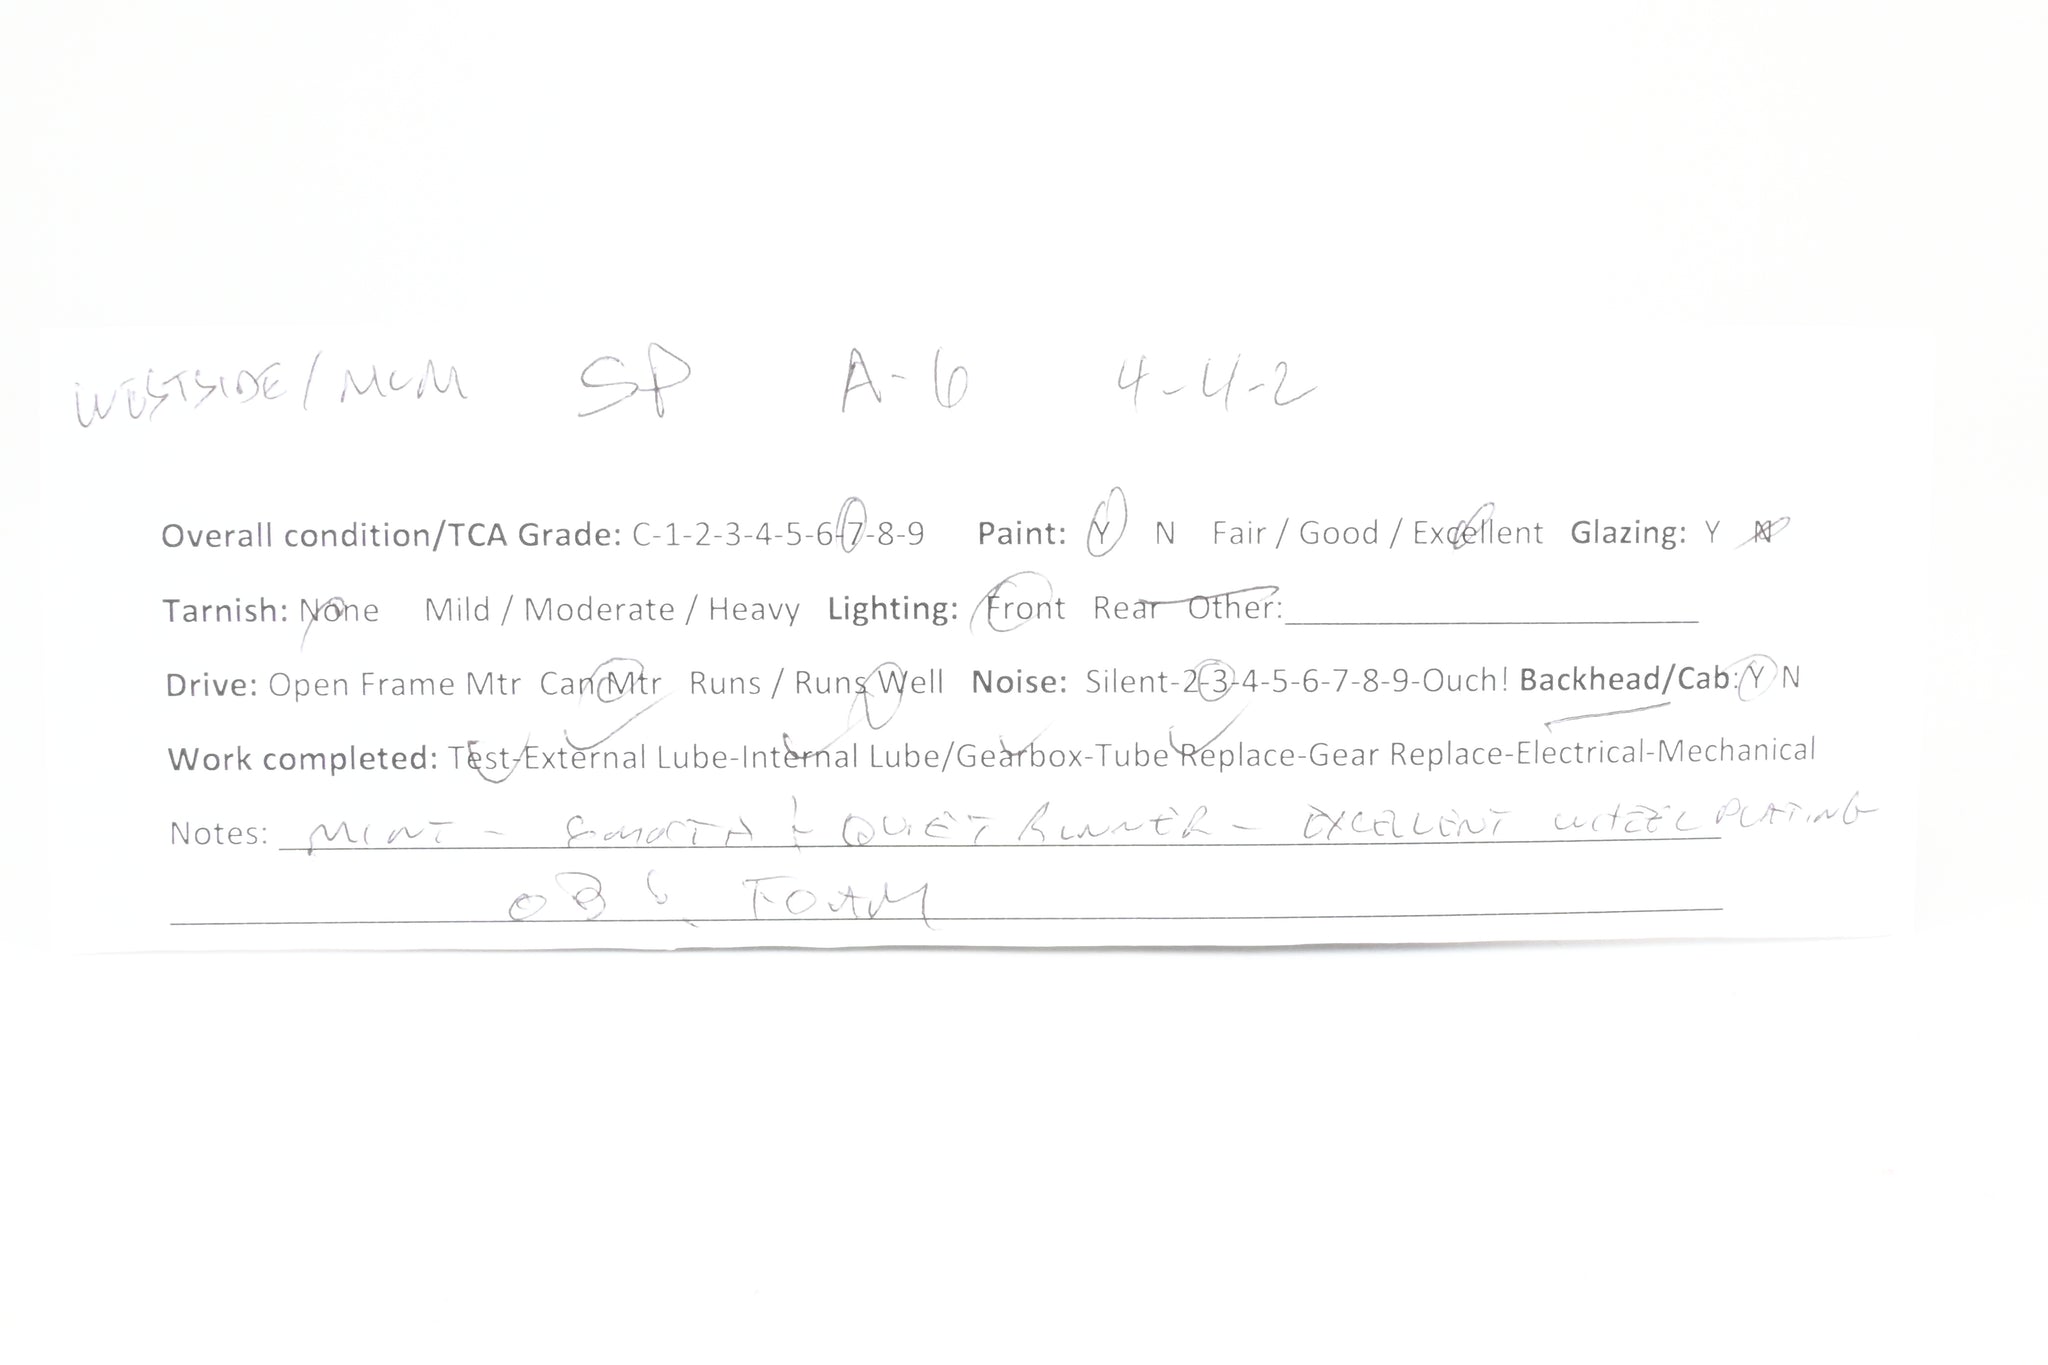 WESTSIDE / MCM SP A-6 4-4-2
Overall condition/TCA Grade: C-1-2-3-4-5-6-7-8-9 Paint: Y N Fair / Good / Excellent Glazing: Y N
Tarnish: None Mild / Moderate / Heavy Lighting: Front Rear Other:
Drive: Open Frame Mtr Can Mtr Runs / Runs Well Noise: Silent-2-3-4-5-6-7-8-9-Ouch! Backhead/Cab: Y N
Work completed: Test-External Lube-Internal Lube/Gearbox-Tube Replace-Gear Replace-Electrical-Mechanical
Notes: MINT - SMOOTH & QUIET RUNNER - EXCELLENT WHEEL PLATING
OB & FOAM